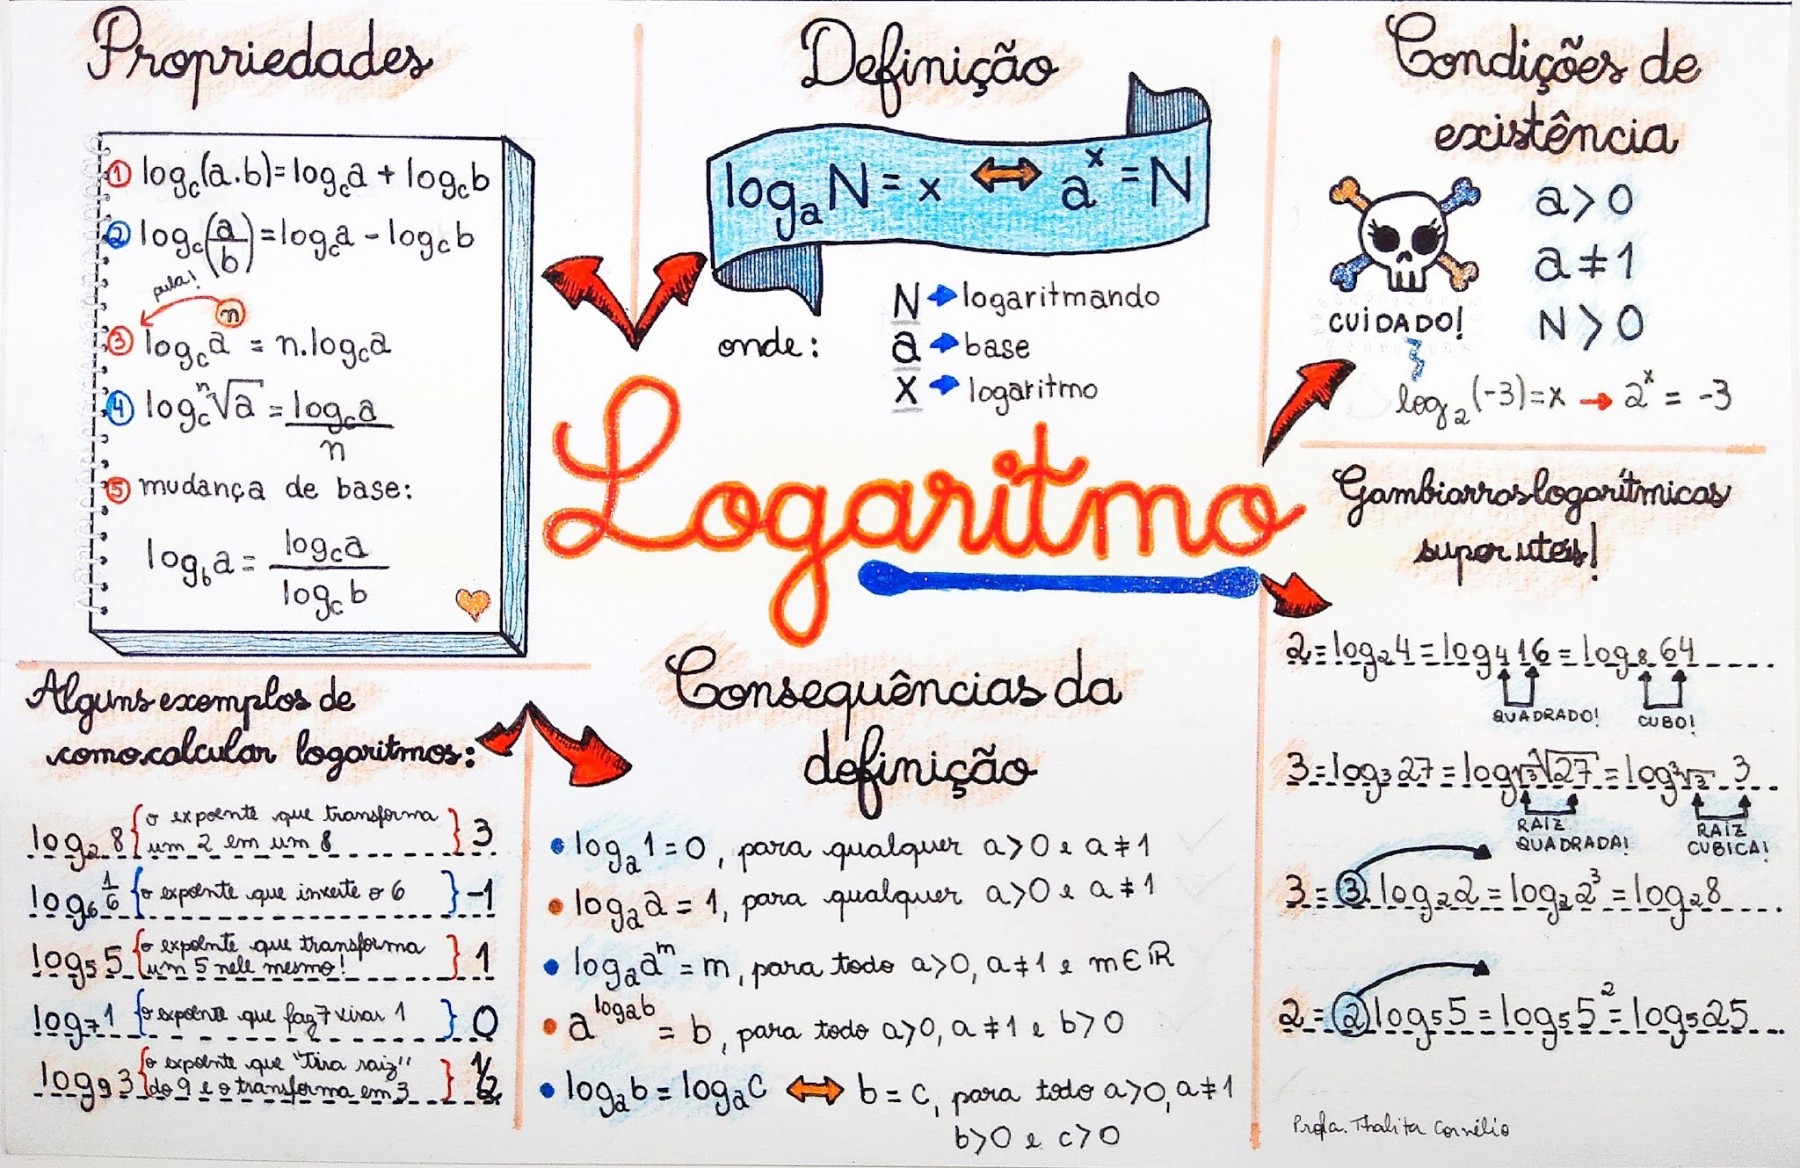 Propriedades
① log_c(a.b)=log_c a + log_c b
② log_c(a/b)=log_c a - log_c b
pula!
③ log_c a^n = n.log_c a
④ log_c ⁿ√a = log_c a / n
⑤ mudança de base:
log_b a = log_c a / log_c b
Definição
log_a N = x ⇔ a^x = N
onde:
N → logaritmando
a → base
x → logaritmo
Condições de
existência
a>0
a≠1
N>0
CUIDADO!
log₂(-3)=x → 2^x = -3
Logaritmo
Gambiarras logarítmicas
super uteis!
2=log₂4=log₄16=log₈64
QUADRADO!
CUBO!
3=log₃27=log_√3 √27=log_³√3 3
RAIZ
QUADRADA!
RAIZ
CUBICA!
3=3.log₂2=log₂2³=log₂8
2=2log₅5=log₅5²=log₅25
Profa. Thalita Cornélio
Alguns exemplos de
como calcular logaritmos:
log₂8 { o expoente que transforma
um 2 em um 8 } 3
log₆ 1/6 { o expoente que inverte o 6 } -1
log₅5 { o expoente que transforma
um 5 nele mesmo! } 1
log₇1 { o expoente que faz 7 virar 1 } 0
log₉3 { o expoente que "tira raiz"
do 9 e o transforma em 3 } 1/2
Consequências da
definição
• log_a 1=0, para qualquer a>0 e a≠1
• log_a a = 1, para qualquer a>0 e a≠1
• log_a a^m = m, para todo a>0, a≠1 e m∈ℝ
• a^(log_a b) = b, para todo a>0, a≠1 e b>0
• log_a b = log_a c ⇔ b = c, para todo a>0, a≠1
b>0 e c>0